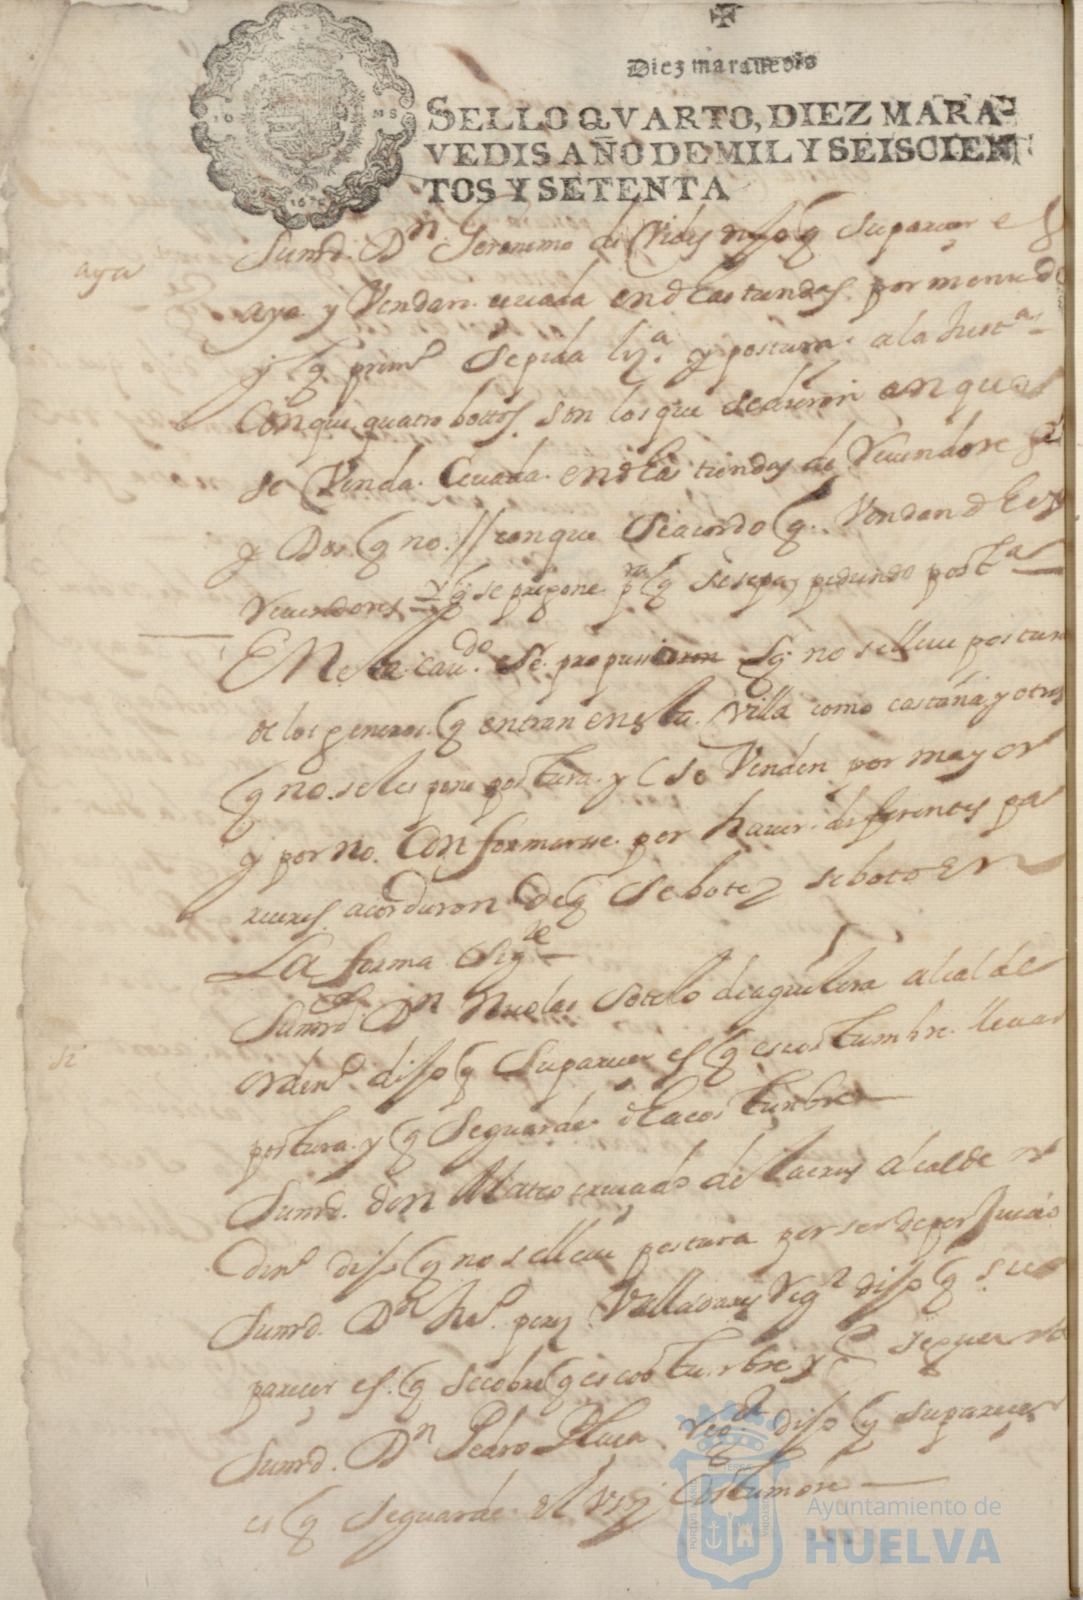 Diez marauedis
SELLO QVARTO, DIEZ MARA-
VEDIS AÑO DE MIL Y SEISCIEN
TOS Y SETENTA
16 MS
1670
Sumd. Dn Geronimo de dijo q su parecer e q
aya
aya y Vendan ceuada en las tiendas por menudo
y q primo se pida liza y postura a la Justa
Con que quatro bottos son los que se dieron en que
se Venda Ceuada en las tiendas de Veuendores
y Dos q no // con que se acordo q Vendan
Veuendores y q se pregone pra q se sepa y pidiendo posta
En este caudo se propusieron q no se lleue postura
de los generos q entran en esta Villa como castaña y otros
q no se les pone postura y se Venden por mayor
y por no Conformarse por hauer diferentes pa
receres acordaron de q se bote y se boto En
La forma Sigte
si
Sumd el Dn Nicolas Sotelo de aguilera alcalde
ordino dijo q Su parecer es q es costumbre lleuar
postura y q Se guarde la costumbre
Sumd. don Mateo de la cruz alcalde or
dino dijo q no se lleue postura por ser de perjuicio
Sumd. Dn perez Valladares Regor dijo q su
parecer es q se cobre q es costumbre y
Sumd. Dn Pedro Regor dijo q su parecer
es q se guarde el Costumbre
Ayuntamiento de
HUELVA